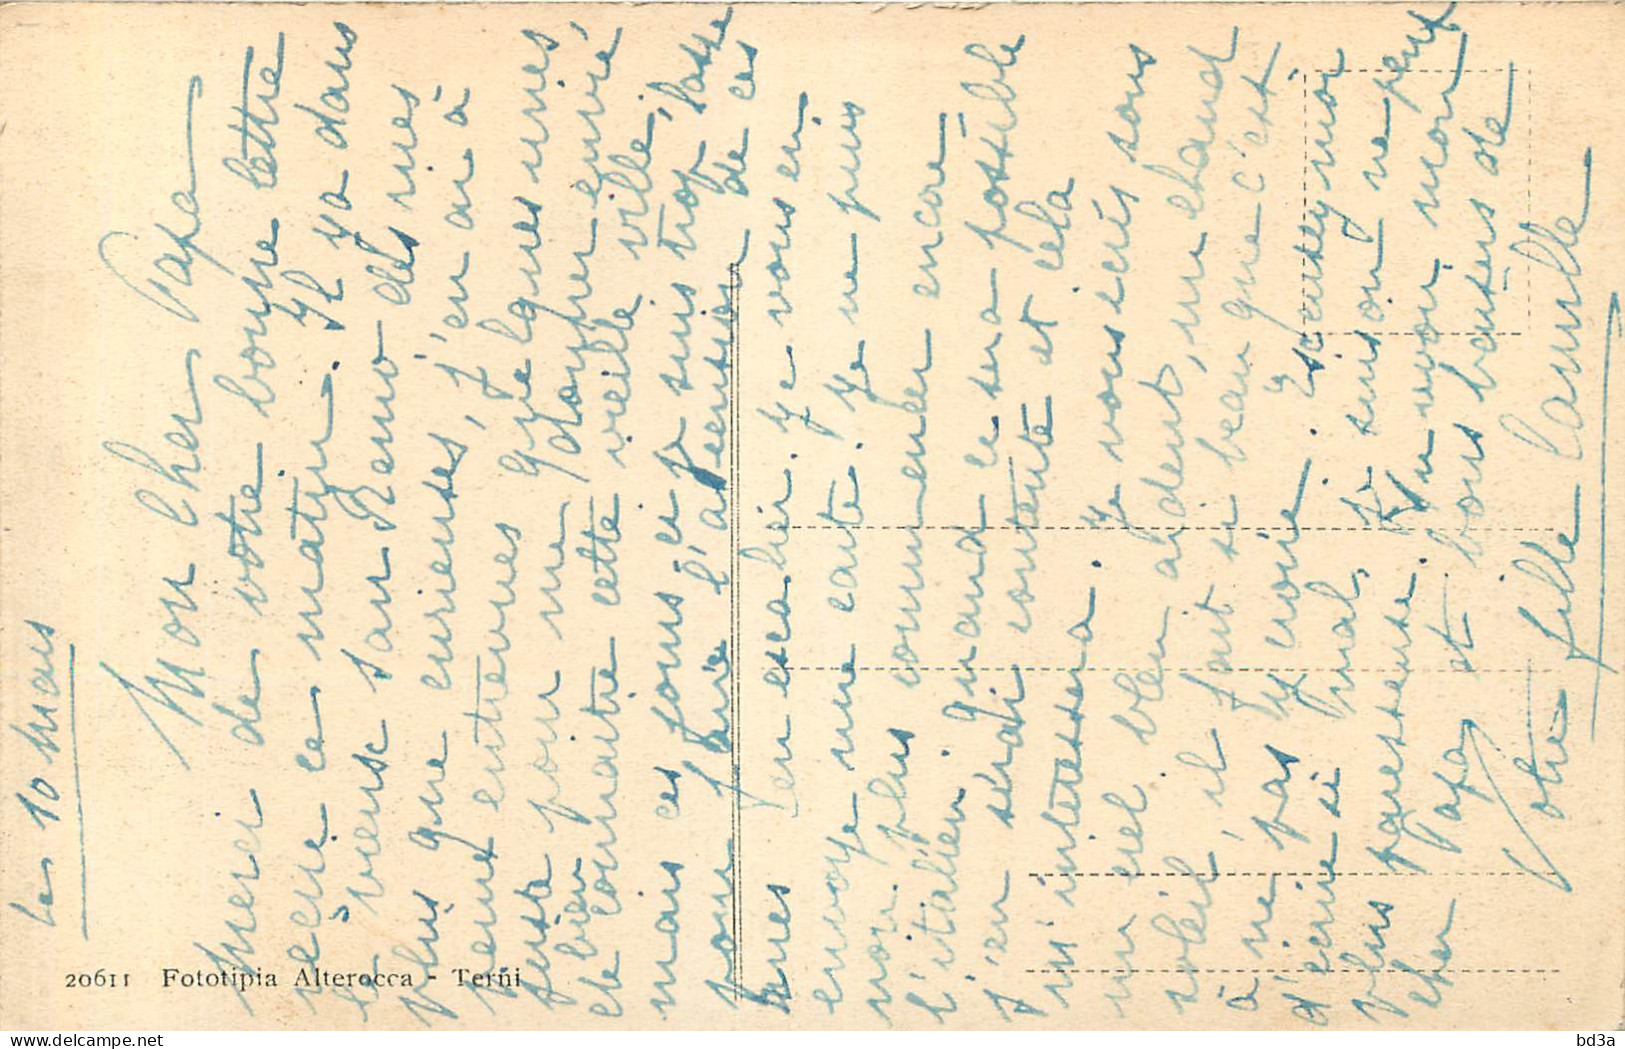 le 10 Mars
Mon Cher Papa
Merci de votre bonne lettre
reçue ce matin. Il y a dans
le vieux san Remo des rues
plus que curieuses, j'en ai à
peine entrevues quelques unes,
peste pour me donner envie
et bien
de connaitre cette vieille ville,
mais ces jours ci je suis trop lasse
pour faire l'ascension de ces
rues en escalier. Je vous en
envoye une carte. Je ne puis
non plus commencer encore
l'italien. Quand ce sera possible
j'en serai contente et cela
m'intéressera. Je vous écris sous
un ciel bleu ardent, un chaud
soleil, il fait si beau que c'est
à ne pas y croire. Excusez moi
d'écrire si mal, je suis on ne peut
plus paresseuse. Au revoir mon
cher Papa et bons baisers de
Votre fille Camille
20611 Fototipia Alterocca - Terni
delcampe.net
bd3a